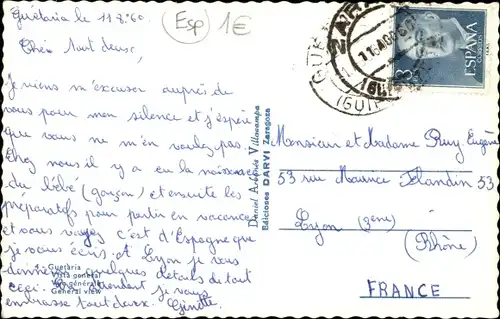 Guétaria le 11.8.60
(Esp) 1€
Chers tout deux,
Je viens m'excuser auprès de
vous pour mon silence et j'espère
que vous ne m'en voulez pas.
Chez nous il y a eu la naissance
du bébé (garçon) et ensuite les
préparatifs pour partir en vacances
et vous voyez c'est d'Espagne que
je vous écris. A Lyon je vous
donnerai quelques détails de tout
ceci. En attendant je vous
embrasse tout deux. Ginette
Guetaria
Vista general
Vue générale
General view
Daniel Arbonés Villacampa
Ediciones DARVI Zaragoza
ESPAÑA
CORREOS
Monsieur et Madame Ruy Eugène
53 rue Maurice Flandin 53
Lyon (3ème)
(Rhône)
FRANCE